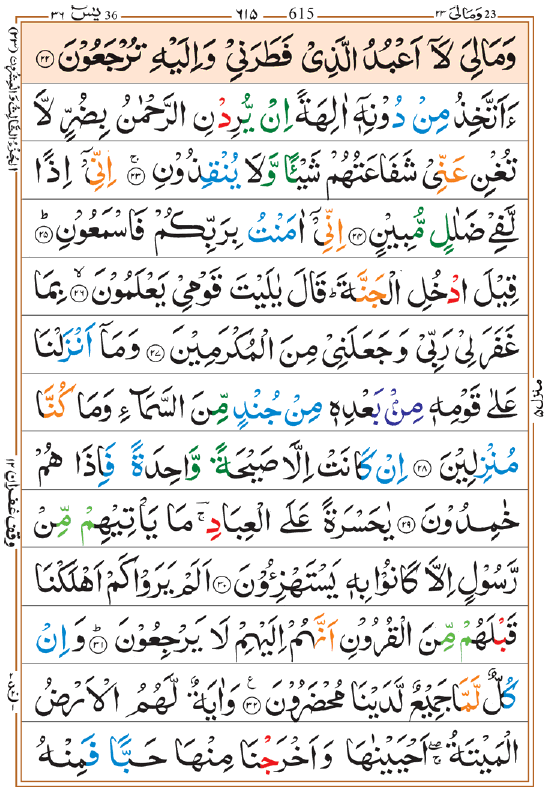 يٰسٓ 36 ٣٦ 615 ٦١٥ وَمَالِيَ 23 ٢٣
وَمَالِيَ لَاۤ اَعْبُدُ الَّذِيْ فَطَرَنِيْ وَاِلَيْهِ تُرْجَعُوْنَ ٢٢
ءَاَتَّخِذُ مِنْ دُوْنِهٖۤ اٰلِهَةً اِنْ يُّرِدْنِ الرَّحْمٰنُ بِضُرٍّ لَّا
تُغْنِ عَنِّيْ شَفَاعَتُهُمْ شَيْـًٔا وَّلَا يُنْقِذُوْنِ ۚ ٢٣ اِنِّيْۤ اِذًا
لَّفِيْ ضَلٰلٍ مُّبِيْنٍ ٢٤ اِنِّيْۤ اٰمَنْتُ بِرَبِّكُمْ فَاسْمَعُوْنِ ؕ ٢٥
قِيْلَ ادْخُلِ الْجَنَّةَ ؕ قَالَ يٰلَيْتَ قَوْمِيْ يَعْلَمُوْنَ ۙ ٢٦ بِمَا
غَفَرَ لِيْ رَبِّيْ وَجَعَلَنِيْ مِنَ الْمُكْرَمِيْنَ ٢٧ وَمَاۤ اَنْزَلْنَا
عَلٰى قَوْمِهٖ مِنْۢ بَعْدِهٖ مِنْ جُنْدٍ مِّنَ السَّمَآءِ وَمَا كُنَّا
مُنْزِلِيْنَ ٢٨ اِنْ كَانَتْ اِلَّا صَيْحَةً وَّاحِدَةً فَاِذَا هُمْ
خٰمِدُوْنَ ٢٩ يٰحَسْرَةً عَلَى الْعِبَادِ ۚ مَا يَاْتِيْهِمْ مِّنْ
رَّسُوْلٍ اِلَّا كَانُوْا بِهٖ يَسْتَهْزِءُوْنَ ٣٠ اَلَمْ يَرَوْا كَمْ اَهْلَكْنَا
قَبْلَهُمْ مِّنَ الْقُرُوْنِ اَنَّهُمْ اِلَيْهِمْ لَا يَرْجِعُوْنَ ؕ ٣١ وَاِنْ
كُلٌّ لَّمَّا جَمِيْعٌ لَّدَيْنَا مُحْضَرُوْنَ ٣٢ ع وَاٰيَةٌ لَّهُمُ الْاَرْضُ
الْمَيْتَةُ ۚ اَحْيَيْنٰهَا وَاَخْرَجْنَا مِنْهَا حَبًّا فَمِنْهُ
منزل ٥
وقف غفران ١٢